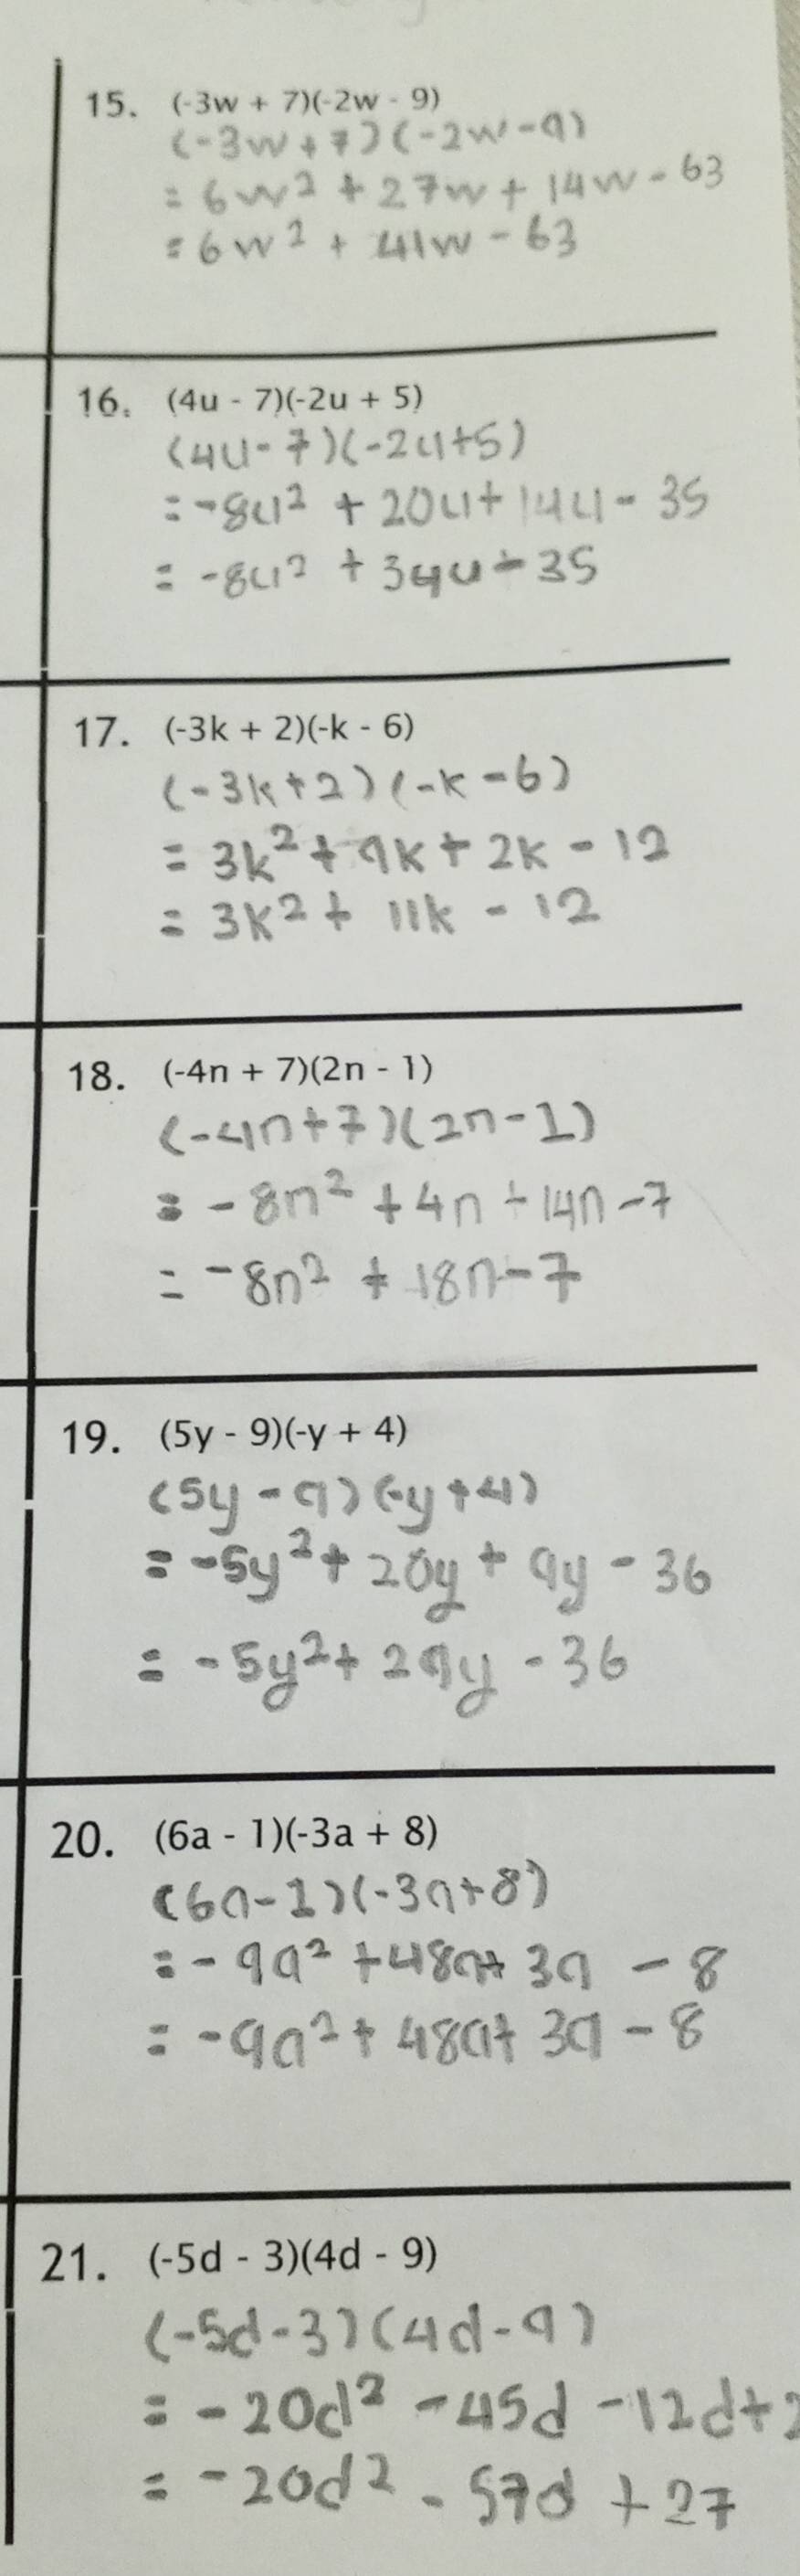 15. (-3w + 7)(-2w - 9)
(-3w+7)(-2w-9)
= 6w² + 27w + 14w - 63
= 6w² + 41w - 63
16. (4u - 7)(-2u + 5)
(4u-7)(-2u+5)
= -8u² + 20u + 14u - 35
= -8u² + 34u - 35
17. (-3k + 2)(-k - 6)
(-3k+2)(-k-6)
= 3k² + 9k + 2k - 12
= 3k² + 11k - 12
18. (-4n + 7)(2n - 1)
(-4n+7)(2n-1)
= -8n² + 4n + 14n - 7
= -8n² + 18n - 7
19. (5y - 9)(-y + 4)
(5y-9)(-y+4)
= -5y² + 20y + 9y - 36
= -5y² + 29y - 36
20. (6a - 1)(-3a + 8)
(6a-1)(-3a+8)
= -9a² + 48a + 3a - 8
= -9a² + 48a + 3a - 8
21. (-5d - 3)(4d - 9)
(-5d-3)(4d-9)
= -20d² - 45d - 12d + 2
= -20d² - 57d + 27